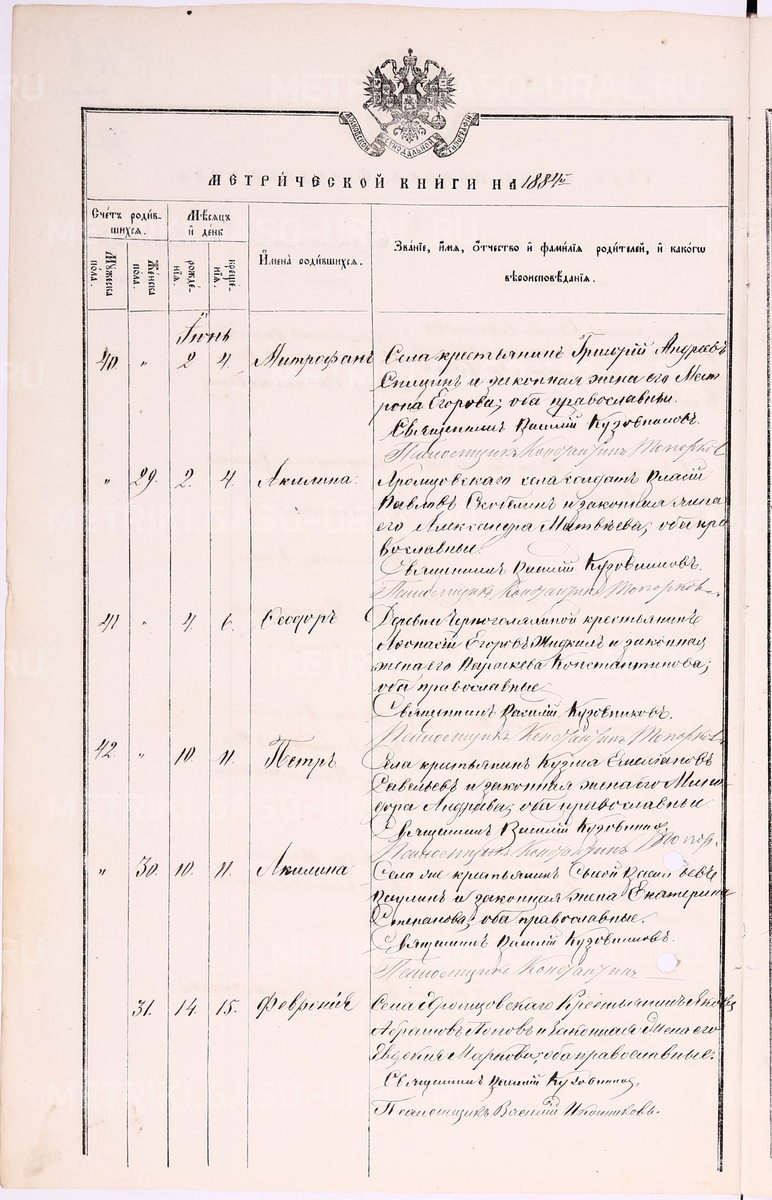 МОСКОВСКОЙ СѴНОДАЛЬНОЙ ТИПОГРАФІИ
МЕТРИ́ЧЕСКОЙ КНИ́ГИ НА 1884й
Сче́тъ роди́в-
шихся.
Мѣ́сяцъ
и҆ де́нь
И҆мена̀ роди́вшихся.
Зва́нїе, и҆́мя, ѻ҆́тчество и҆ фами́лїя роди́телей, и҆ како́гѡ
вѣроисповѣ́данїя.
Му́жеска
пола.
Же́нска
пола.
рожде́-
нїя.
креще́-
нїя.
Іюнь
40. „ 2 4. Митрофанъ Села крестьянинъ Григорій Андреевъ
Спицинъ и законная жена его Мат
рона Егорова; оба православные.
Священникъ Василій Кузовниковъ.
Псаломщикъ Константинъ Топорков
„ 29. 2. 4. Акилина. села солдатъ Власій
Павловъ и законная жена
его Александра Матвѣева; оба пра
вославные.
Священникъ Василій Кузовниковъ.
Псаломщикъ Константинъ Топорков.
41 „ 4. 6. Ѳеодоръ Деревни Черноголяниной крестьянинъ
Аѳонасій Егоровъ и законная
жена его Параскева Константинова;
оба православные.
Священникъ Василій Кузовниковъ.
Псаломщикъ Константинъ Топорков
42. „ 10. 11. Петръ Села крестьянинъ Кузма Емеліановъ
Савельевъ и законная жена его Мино
дора Андреева; оба православные.
Священникъ Василій Кузовников
Псаломщикъ Константинъ Топор.
„ 30. 10. 11. Акилина Села же крестьянинъ Сысой Васильевъ
и законная жена Екатерина
Степанова; оба православные.
Священникъ Василій Кузовниковъ.
Псаломщикъ Константинъ
31. 14. 15. Февронія Села Крестьянинъ Яковъ
Абрамовъ Поповъ и Законная Жена его
Евдокія Маркова; оба православные.
Священникъ Василій Кузовников.
Псаломщикъ Василій Иконниковъ.